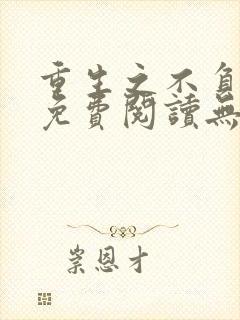 重生之不負
免費閱讀無
崇恩才